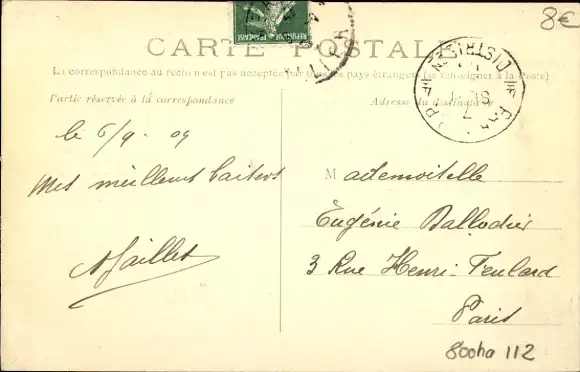 8€
CARTE POSTALE
La correspondance au recto n'est pas acceptée par tous les pays étrangers (se renseigner à la Poste)
Partie réservée à la correspondance
Adresse du destinataire
le 6/9 - 09
Mes meilleurs baisers
Mademoiselle
Eugénie
3 Rue Henri Feulard
Paris
DISTRIB
800ha 112